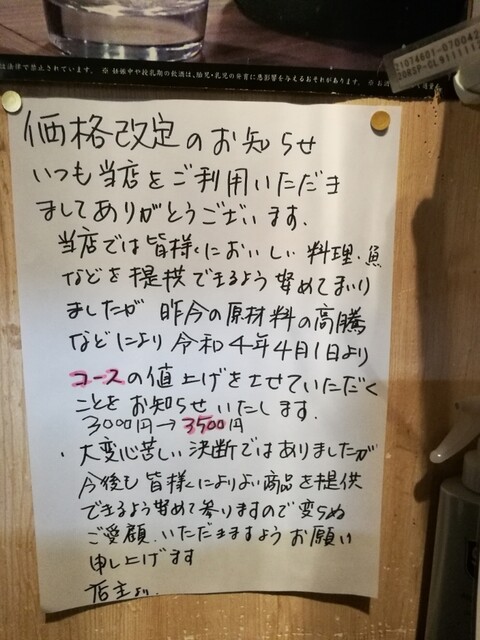 は法律で禁止されています。 ※ 妊娠中や授乳期の飲酒は、胎児・乳児の発育に悪影響を与えるおそれがあります。 ※ お酒
価格改定のお知らせ
いつも当店をご利用いただき
ましてありがとうございます。
当店では皆様においしい料理・魚
などを提供できるよう努めてまいり
ましたが 昨今の原材料の高騰
などにより令和4年4月1日より
コースの値上げをさせていただく
ことをお知らせいたします。
3000円→3500円
大変心苦しい決断ではありましたが
今後も皆様によりよい商品を提供
できるよう努めて参りますので変らぬ
ご愛顧いただきますようお願い
申し上げます
店主より